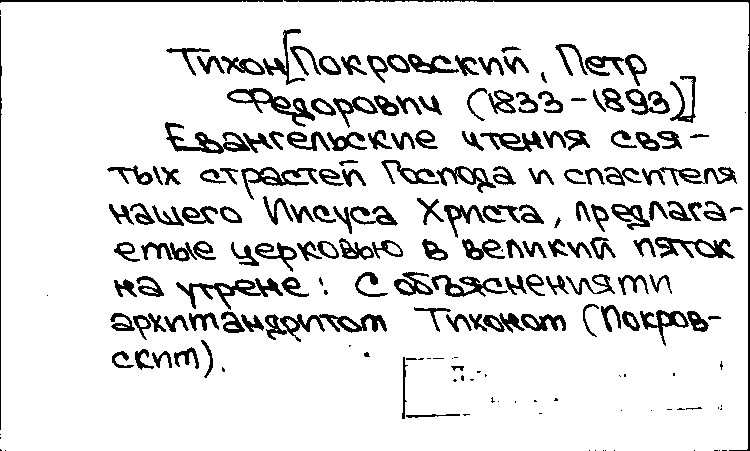 Тихон [Покровский, Петр
Федорович (1833-1893)]
Евангельские чтения свя-
тых страстей Господа и спасителя
нашего Иисуса Христа, предлага-
емые церковью в великий пяток
на утрене: С объяснениями
архимандритом Тихоном (Покров-
ским).